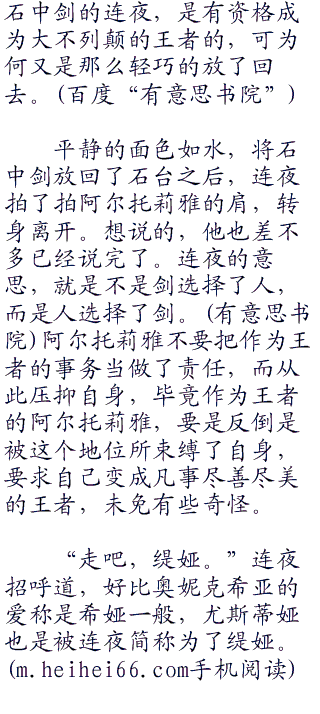 石中剑的连夜，是有资格成
为大不列颠的王者的，可为
何又是那么轻巧的放了回
去。(百度“有意思书院”)
平静的面色如水，将石
中剑放回了石台之后，连夜
拍了拍阿尔托莉雅的肩，转
身离开。想说的，他也差不
多已经说完了。连夜的意
思，就是不是剑选择了人，
而是人选择了剑。(有意思书
院)阿尔托莉雅不要把作为王
者的事务当做了责任，而从
此压抑自身，毕竟作为王者
的阿尔托莉雅，要是反倒是
被这个地位所束缚了自身，
要求自己变成凡事尽善尽美
的王者，未免有些奇怪。
“走吧，缇娅。”连夜
招呼道，好比奥妮克希亚的
爱称是希娅一般，尤斯蒂娅
也是被连夜简称为了缇娅。
(m.heihei66.com手机阅读)